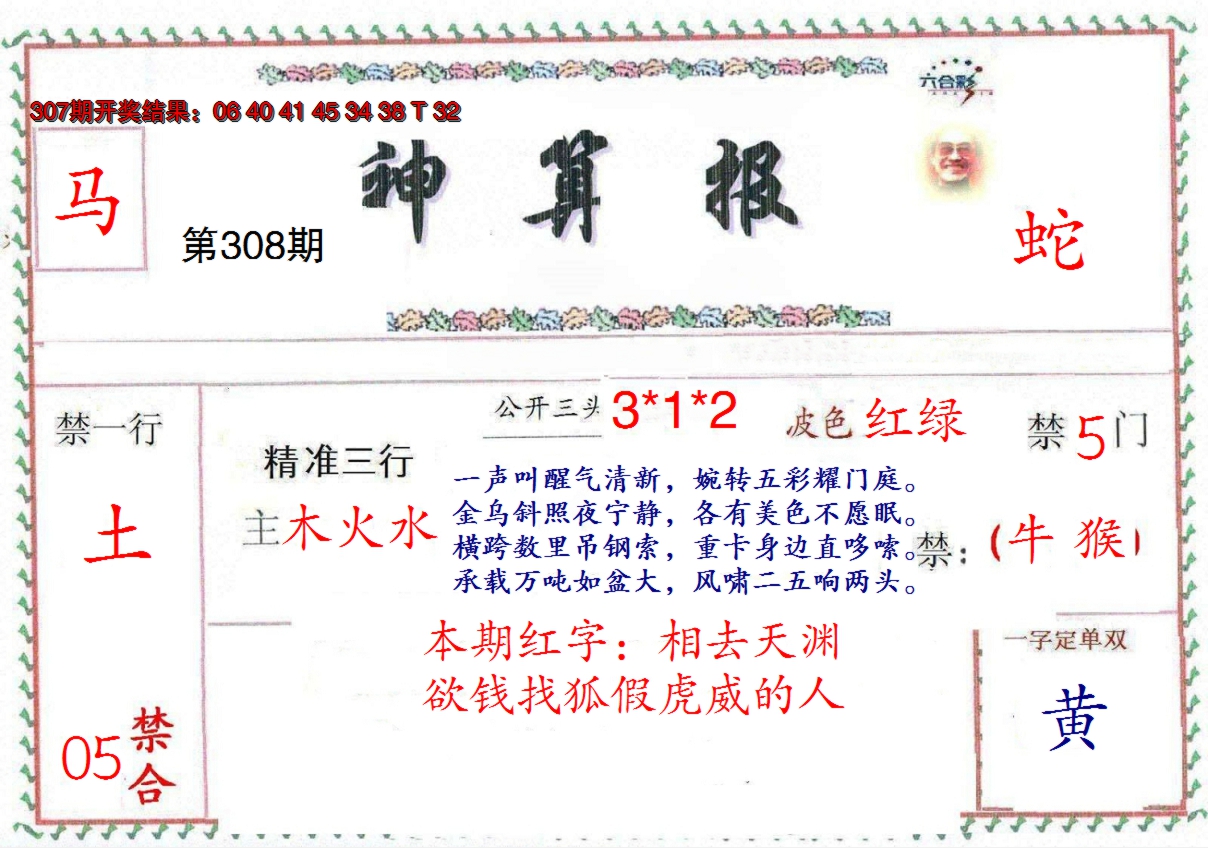 六合彩
307期开奖结果：06 40 41 45 34 38 T 32
马
神算报
第308期
蛇
禁一行
土
05
禁合
精准三行
主木火水
公开三头
3*1*2
波色 红绿
禁5门
一声叫醒气清新，婉转五彩耀门庭。
金乌斜照夜宁静，各有美色不愿眠。
横跨数里吊钢索，重卡身边直哆嗦。
承载万吨如盆大，风啸二五响两头。
禁：（牛 猴）
本期红字：相去天渊
欲钱找狐假虎威的人
一字定单双
黄